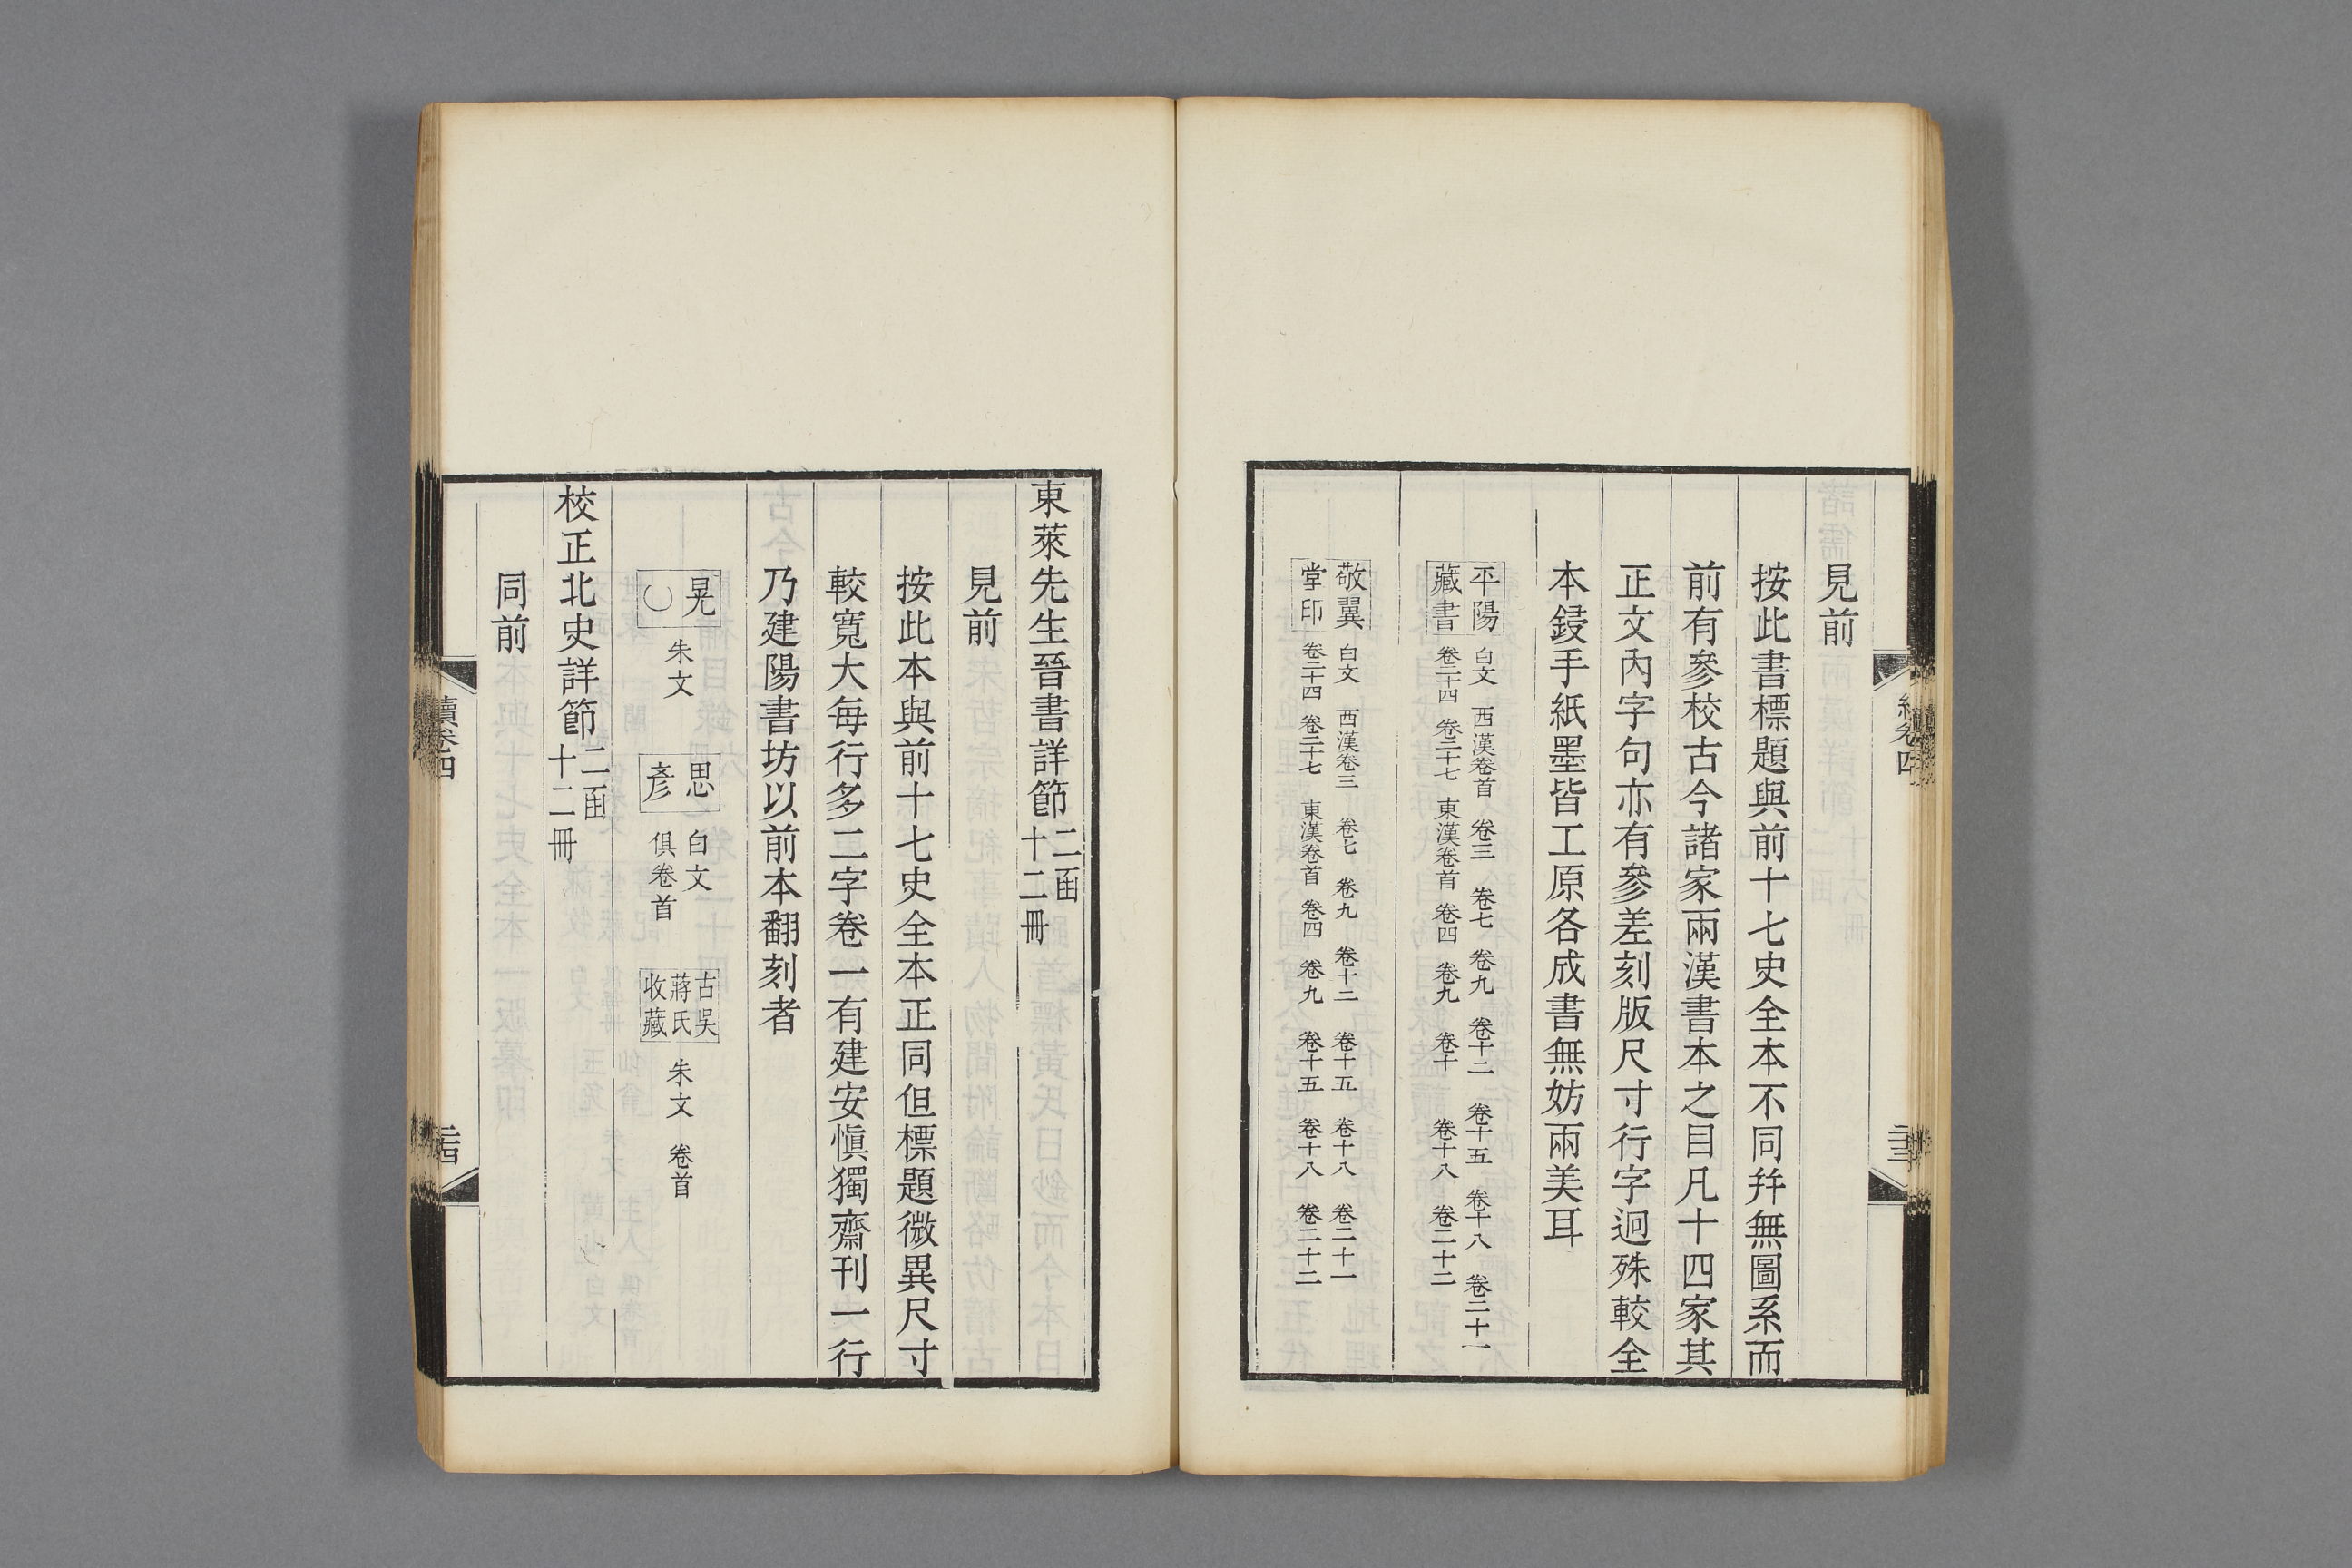 見前
按此書標題與前十七史全本不同幷無圖系而
前有參校古今諸家兩漢書本之目凡十四家其
正文內字句亦有參差刻版尺寸行字迥殊較全
本鋟手紙墨皆工原各成書無妨兩美耳
平陽藏書 白文 西漢卷首 卷三 卷七 卷九 卷十二 卷十五 卷十八 卷二十一
卷二十四 卷二十七 東漢卷首 卷四 卷九 卷十 卷十八 卷二十二
敬翼堂印 白文 西漢卷三 卷七 卷九 卷十二 卷十五 卷十八 卷二十一
卷二十四 卷二十七 東漢卷首 卷四 卷九 卷十五 卷十八 卷二十二
東萊先生晉書詳節 二函十二冊
見前
按此本與前十七史全本正同但標題微異尺寸
較寬大每行多二字卷一有建安愼獨齋刊一行
乃建陽書坊以前本翻刻者
晃〇 朱文 思彥 白文 俱卷首 古吳蔣氏收藏 朱文 卷首
校正北史詳節 二函十二冊
同前
續卷四